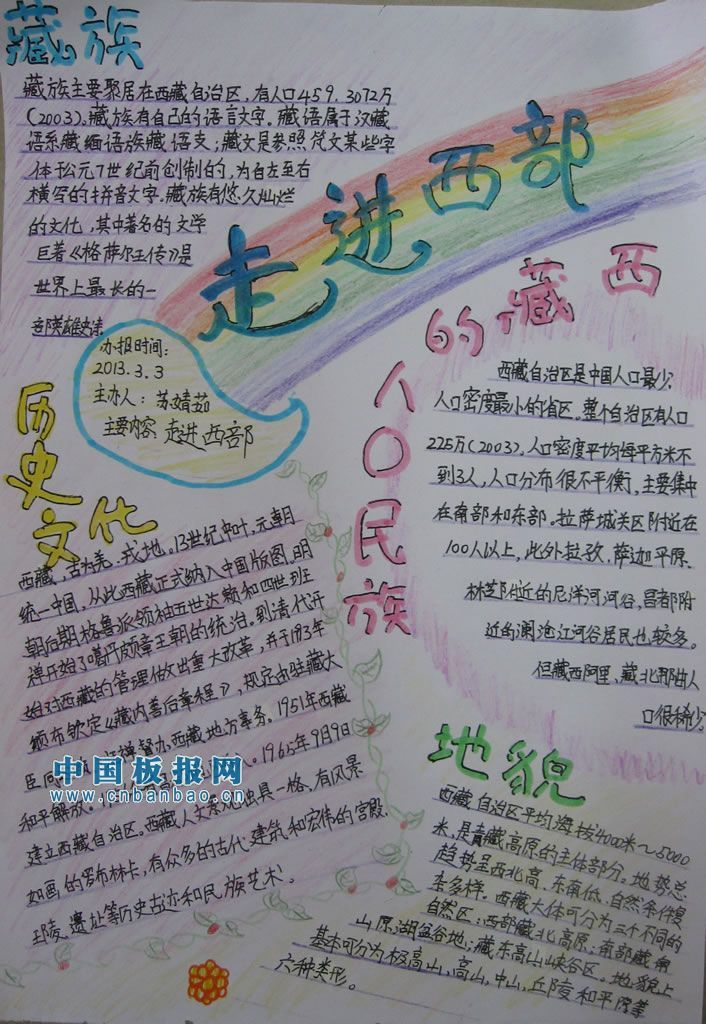 藏族
藏族主要聚居在西藏自治区,有人口459.3072万
(2003).藏族有自己的语言文字。藏语属于汉藏
语系藏缅语族藏语支;藏文是参照梵文某些字
体于公元7世纪前创制的,为自左至右
横写的拼音文字。藏族有悠久灿烂
的文化,其中著名的文学
巨著《格萨尔王传》是
世界上最长的一
部英雄史诗
走进西部
办报时间:
2013.3.3
主办人:苏婧茹
主要内容:走进西部
西藏的
人口民族
西藏自治区是中国人口最少,
人口密度最小的省区。整个自治区有人口
225万(2003).人口密度平均每平方米不
到3人,人口分布很不平衡,主要集中
在南部和东部。拉萨城关区附近在
100人以上,此外拉孜,萨迦平原、
林芝附近的尼洋河河谷,昌都附
近的澜沧江河谷居民也较多。
但藏西阿里、藏北那曲人
口很稀少
历史
文化
西藏,古为羌、戎地。13世纪中叶,元朝
统一中国,从此西藏正式纳入中国版图.明
朝后期格鲁派领袖五世达赖和四世班
禅开始了噶丹颇章王朝的统治。到清代开
始对西藏的管理做出重大改革,并于1793年
颁布钦定《藏内善后章程》,规定由驻藏大
臣同 督办西藏地方事务。1951年西藏
和平解放。 1965年9月9日
建立西藏自治区。西藏人文景观独具一格、有风景
如画的罗布林卡,有众多的古代建筑和宏伟的宫殿、
王陵、遗址等历史古迹和民族艺术!
地貌
西藏自治区平均海拔4000米~5000
米,是青藏高原的主体部分。地势总
趋势呈西北高、东南低.自然条件复
杂多样。西藏大体可分为三个不同的
自然区:西部藏北高原;南部藏南
山原湖盆谷地;藏东高山峡谷区。地貌上
基本可分为极高山,高山,中山,丘陵和平原等
六种类形。
中国板报网
www.cnbanbao.cn